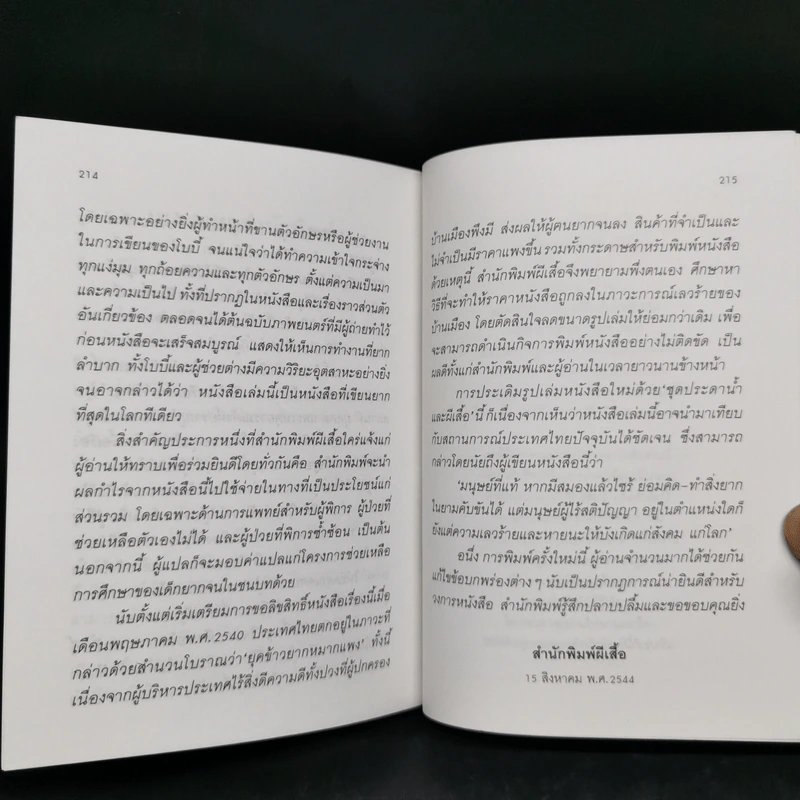 214
โดยเฉพาะอย่างยิ่งผู้ทำหน้าที่ขานตัวอักษรหรือผู้ช่วยงาน
ในการเขียนของโบบี้ จนแน่ใจว่าได้ทำความเข้าใจกระจ่าง
ทุกแง่มุม ทุกถ้อยความและทุกตัวอักษร ตั้งแต่ความเป็นมา
และความเป็นไป ทั้งที่ปรากฏในหนังสือและเรื่องราวส่วนตัว
อันเกี่ยวข้อง ตลอดจนได้ต้นฉบับภาพยนตร์ที่มีผู้ถ่ายทำไว้
ก่อนหนังสือจะเสร็จสมบูรณ์ แสดงให้เห็นการทำงานที่ยาก
ลำบาก ทั้งโบบี้และผู้ช่วยต่างมีความวิริยะอุตสาหะอย่างยิ่ง
จนอาจกล่าวได้ว่า หนังสือเล่มนี้เป็นหนังสือที่เขียนยาก
ที่สุดในโลกทีเดียว
สิ่งสำคัญประการหนึ่งที่สำนักพิมพ์ผีเสื้อใคร่แจ้งแก่
ผู้อ่านให้ทราบเพื่อร่วมยินดีโดยทั่วกันคือ สำนักพิมพ์จะนำ
ผลกำไรจากหนังสือนี้ไปใช้จ่ายในทางที่เป็นประโยชน์แก่
ส่วนรวม โดยเฉพาะด้านการแพทย์สำหรับผู้พิการ ผู้ป่วยที่
ช่วยเหลือตัวเองไม่ได้ และผู้ป่วยที่พิการซ้ำซ้อน เป็นต้น
นอกจากนี้ ผู้แปลก็จะมอบค่าแปลแก่โครงการช่วยเหลือ
การศึกษาของเด็กยากจนในชนบทด้วย
นับตั้งแต่เริ่มเตรียมการขอลิขสิทธิ์หนังสือเรื่องนี้เมื่อ
เดือนพฤษภาคม พ.ศ.2540 ประเทศไทยตกอยู่ในภาวะที่
กล่าวด้วยสำนวนโบราณว่า‘ยุคข้าวยากหมากแพง’ ทั้งนี้
เนื่องจากผู้บริหารประเทศไร้สิ่งดีความดีทั้งปวงที่ผู้ปกครอง
215
บ้านเมืองพึงมี ส่งผลให้ผู้คนยากจนลง สินค้าที่จำเป็นและ
ไม่จำเป็นมีราคาแพงขึ้น รวมทั้งกระดาษสำหรับพิมพ์หนังสือ
ด้วยเหตุนี้ สำนักพิมพ์ผีเสื้อจึงพยายามพึ่งตนเอง ศึกษาหา
วิธีที่จะทำให้ราคาหนังสือถูกลงในภาวะการณ์เลวร้ายของ
บ้านเมือง โดยตัดสินใจลดขนาดรูปเล่มให้ย่อมกว่าเดิม เพื่อ
จะสามารถดำเนินกิจการพิมพ์หนังสืออย่างไม่ติดขัด เป็น
ผลดีทั้งแก่สำนักพิมพ์และผู้อ่านในเวลายาวนานข้างหน้า
การประเดิมรูปเล่มหนังสือใหม่ด้วย‘ชุดประดาน้ำ
และผีเสื้อ’นี้ ก็เนื่องจากเห็นว่าหนังสือเล่มนี้อาจนำมาเทียบ
กับสถานการณ์ประเทศไทยปัจจุบันได้ชัดเจน ซึ่งสามารถ
กล่าวโดยนัยถึงผู้เขียนหนังสือนี้ว่า
‘มนุษย์ที่แท้ หากมีสมองแล้วไซร้ ย่อมคิด-ทำสิ่งยาก
ในยามคับขันได้ แต่มนุษย์ผู้ไร้สติปัญญา อยู่ในตำแหน่งใดก็
ยังแต่ความเลวร้ายและหายนะให้บังเกิดแก่สังคม แก่โลก’
อนึ่ง การพิมพ์ครั้งใหม่นี้ ผู้อ่านจำนวนมากได้ช่วยกัน
แก้ไขข้อบกพร่องต่างๆ นับเป็นปรากฏการณ์น่ายินดีสำหรับ
วงการหนังสือ สำนักพิมพ์รู้สึกปลาบปลื้มและขอขอบคุณยิ่ง
สำนักพิมพ์ผีเสื้อ
15 สิงหาคม พ.ศ.2544